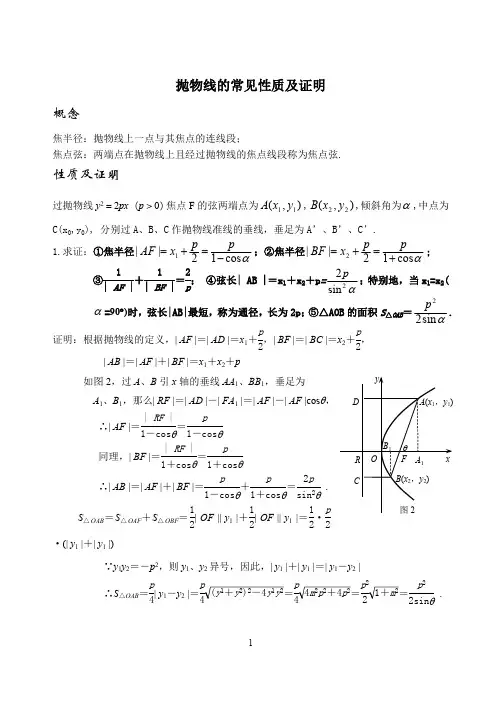 抛物线的常见性质及证明
概念
焦半径：抛物线上一点与其焦点的连线段；
焦点弦：两端点在抛物线上且经过抛物线的焦点线段称为焦点弦.
性质及证明
过抛物线y²=2px (p>0)焦点F的弦两端点为A(x₁,y₁),B(x₂,y₂),倾斜角为α,中点为
C(x₀,y₀), 分别过A、B、C作抛物线准线的垂线，垂足为A’、B’、C’.
1.求证：①焦半径|AF|=x₁+p/2=p/(1-cosα)；②焦半径|BF|=x₂+p/2=p/(1+cosα)；
③1/|AF|+1/|BF|=2/p； ④弦长| AB |=x₁+x₂+p=2p/sin²α；特别地，当x₁=x₂(
α=90°)时，弦长|AB|最短，称为通径，长为2p；⑤△AOB的面积S△OAB=p²/(2sinα).
证明：根据抛物线的定义，|AF|=|AD|=x₁+p/2，|BF|=|BC|=x₂+p/2，
|AB|=|AF|+|BF|=x₁+x₂+p
如图2，过A、B引x轴的垂线AA₁、BB₁，垂足为
A₁、B₁，那么|RF|=|AD|-|FA₁|=|AF|-|AF|cosθ，
∴|AF|=|RF|/(1-cosθ)=p/(1-cosθ)
同理，|BF|=|RF|/(1+cosθ)=p/(1+cosθ)
∴|AB|=|AF|+|BF|=p/(1-cosθ)+p/(1+cosθ)=2p/sin²θ .
S△OAB=S△OAF+S△OBF=1/2|OF||y₁|+1/2|OF||y₁|=1/2·p/2
·(|y₁|+|y₁|)
∵y₁y₂=-p²，则y₁、y₂异号，因此，|y₁|+|y₁|=|y₁-y₂|
∴S△OAB=p/4|y₁-y₂|=p/4√((y¹+y²)²-4y¹y²)=p/4√(4m²p²+4p²)=p²/2√(1+m²)=p²/(2sinθ) .
y
D
A(x₁, y₁)
B₁
θ
R
O
F
A₁
x
C
B(x₂, y₂)
图2
1